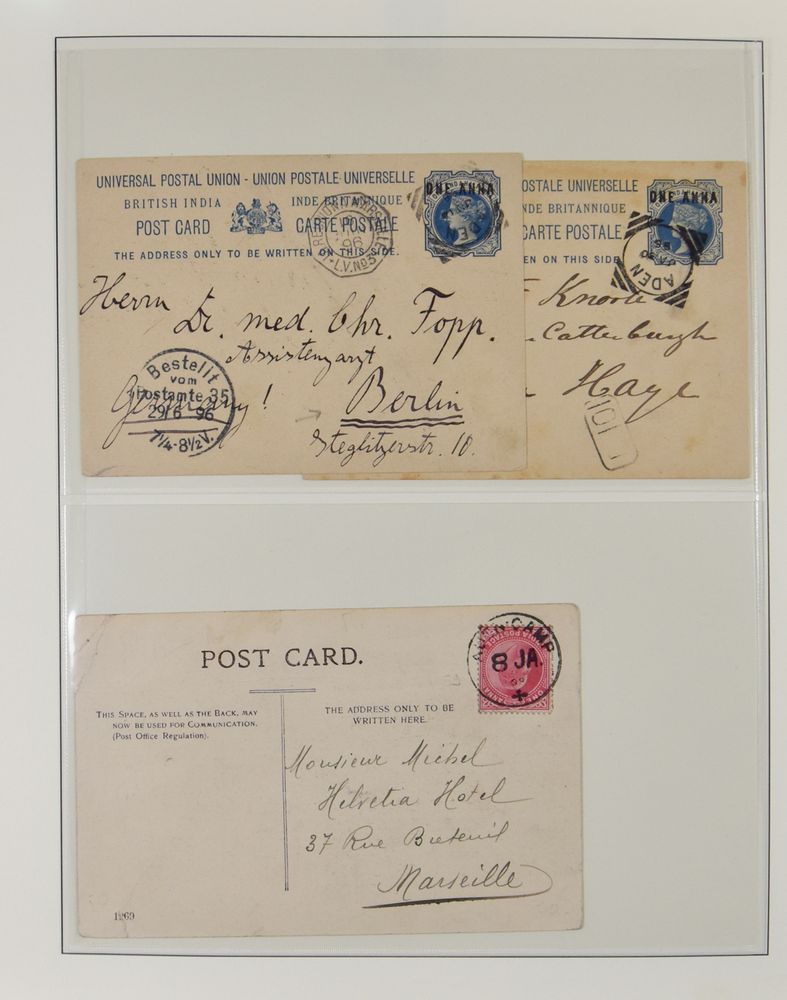 UNIVERSAL POSTAL UNION - UNION POSTALE UNIVERSELLE
BRITISH INDIA INDE BRITANNIQUE
POST CARD CARTE POSTALE
THE ADDRESS ONLY TO BE WRITTEN ON THIS SIDE.
ONE ANNA
L.V. No3
96
Herrn
Dr. med. Chr. Fopp.
Assistenzarzt
Germany! Berlin
Steglitzerstr. 10.
Bestellt
vom
Postamte 35
29/6 96
7¼-8½V.
OSTALE UNIVERSELLE
NDE BRITANNIQUE
CARTE POSTALE
EN ON THIS SIDE
ONE ANNA
ADEN
Knoote
Catterburgh
Haye
POST CARD.
ADEN·CAMP
8 JA.
THIS SPACE, AS WELL AS THE BACK, MAY
NOW BE USED FOR COMMUNICATION.
(Post Office Regulation).
THE ADDRESS ONLY TO BE
WRITTEN HERE.
Monsieur Michel
Helvetia Hotel
37 Rue Breteuil
Marseille
1269